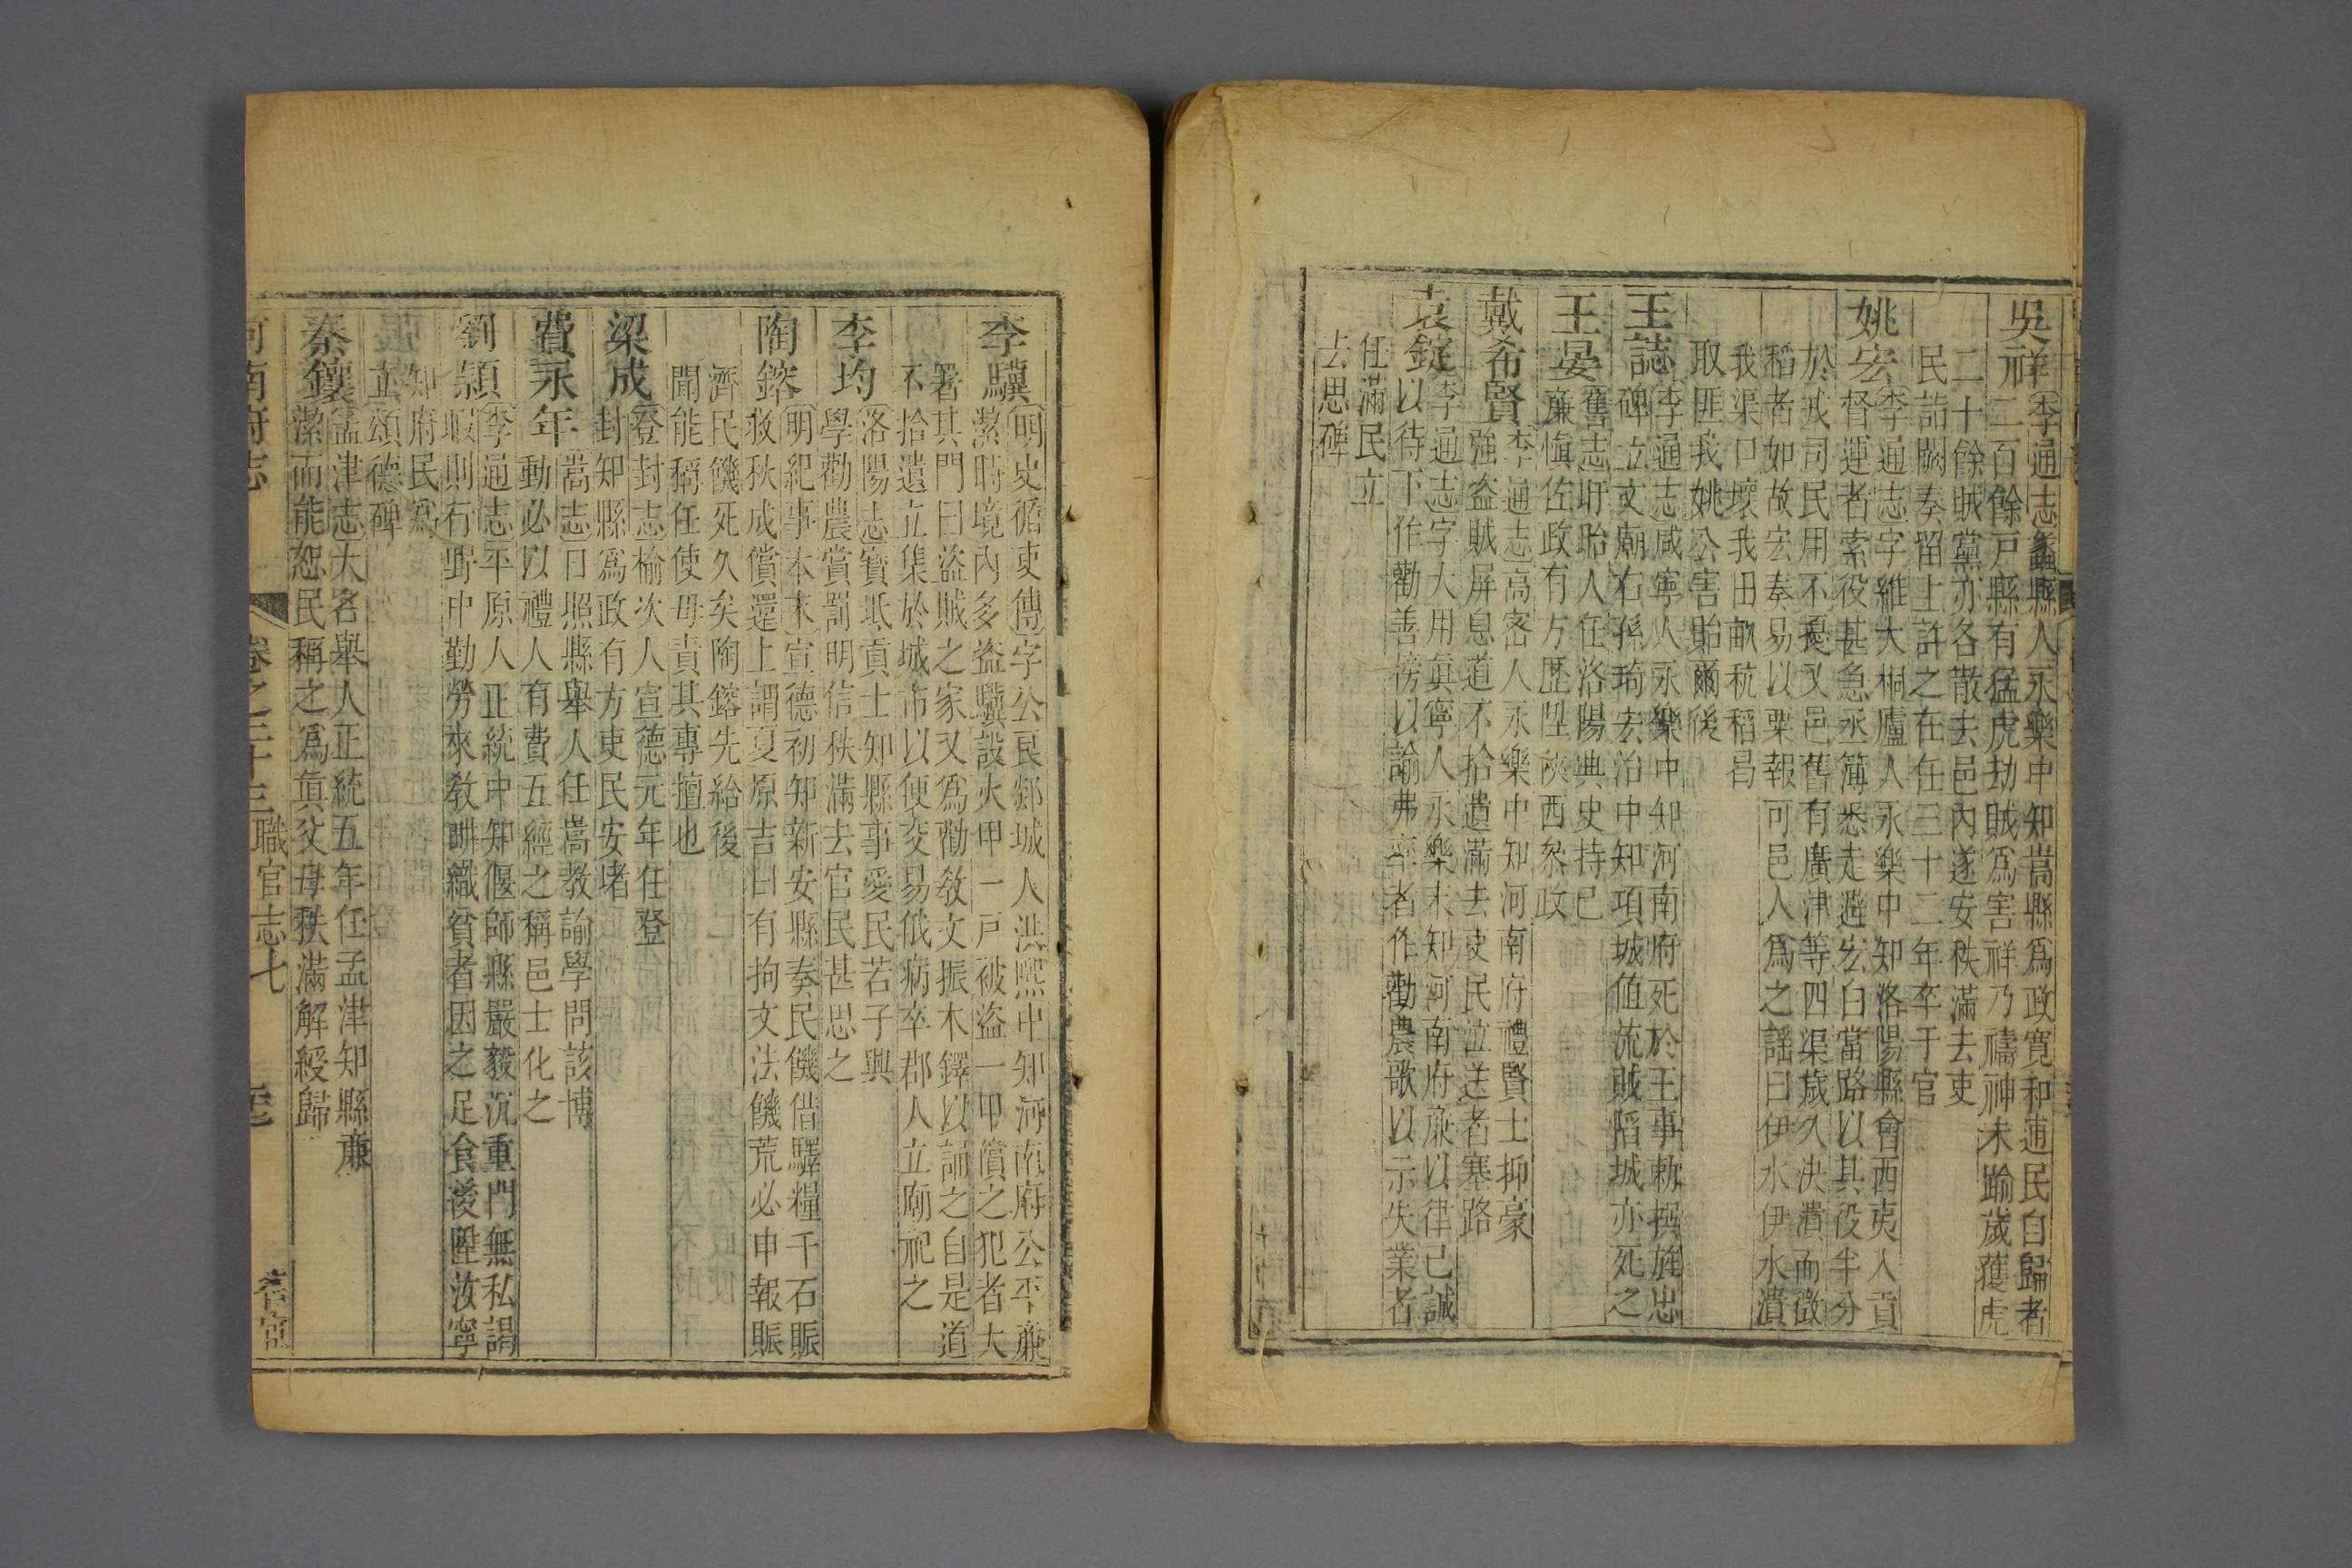 吳祥李通志蠡縣人永樂中知嵩縣爲政寬和逋民自歸者
二百餘戸縣有猛虎劫賊爲害祥乃禱神未踰歲獲虎
二十餘賊黨亦各散去邑內遂安秩滿去吏
民詣闕奏留上許之在任三十二年卒于官
姚宏李通志字維大桐廬人永樂中知洛陽縣會西夷入貢
督運者索役甚急丞簿悉走避宏曰當路以其役半分
於戎司民用不擾又邑舊有廣津等四渠歲久決潰而徵
稻者如故宏奏易以粟報可邑人爲之謡曰伊水伊水潰
我渠口壞我田畝秔稻曷
取匪我姚公害貽爾後
王誌李通志咸寧人永樂中知河南府死於王事勅撰旌忠
碑立文廟右孫琦宏治中知項城値流賊陷城亦死之
王晏舊志盱眙人任洛陽典史持己
亷愼佐政有方歷陞陜西叅政
戴希賢李通志高密人永樂中知河南府禮賢士抑豪
強盜賊屏息道不拾遺滿去吏民泣送者塞路
袁錠李通志字大用眞寧人永樂末知河南府亷以律己誠
以待下作勸善榜以諭弗率者作勸農歌以示失業者
任滿民立
去思碑
李驥明史循吏傳字公艮郯城人洪熙中知河南府公平亷
潔時境內多盜驥設火甲一戸被盜一甲償之犯者大
署其門曰盜賊之家又爲勸敎文振木鐸以誦之自是道
不拾遺立集於城市以便交易俄病卒郡人立廟祀之
李均洛陽志寳坻貢士知縣事愛民若子興
學勸農賞罰明信秩滿去官民甚思之
陶鎔明紀事本末宣德初知新安縣奏民饑借驛糧千石賑
救秋成償還上謂夏原吉曰有拘文法饑荒必申報賑
濟民饑死久矣陶鎔先給後
聞能稱任使毋責其專擅也
梁成登封志榆次人宣德元年任登
封知縣爲政有方吏民安堵
費永年嵩志日照縣舉人任嵩教諭學問該博
動必以禮人有費五經之稱邑士化之
劉頴李通志平原人正統中知偃師縣嚴毅沉重門無私謁
暇則行野中勤勞來敎畊織貧者因之足食後陞汝寧
知府民爲
立頌德碑
秦鑲孟津志大名舉人正統五年任孟津知縣亷
潔而能恕民稱之爲眞父母秩滿解綬歸
河南府志
卷之三十三職官志七